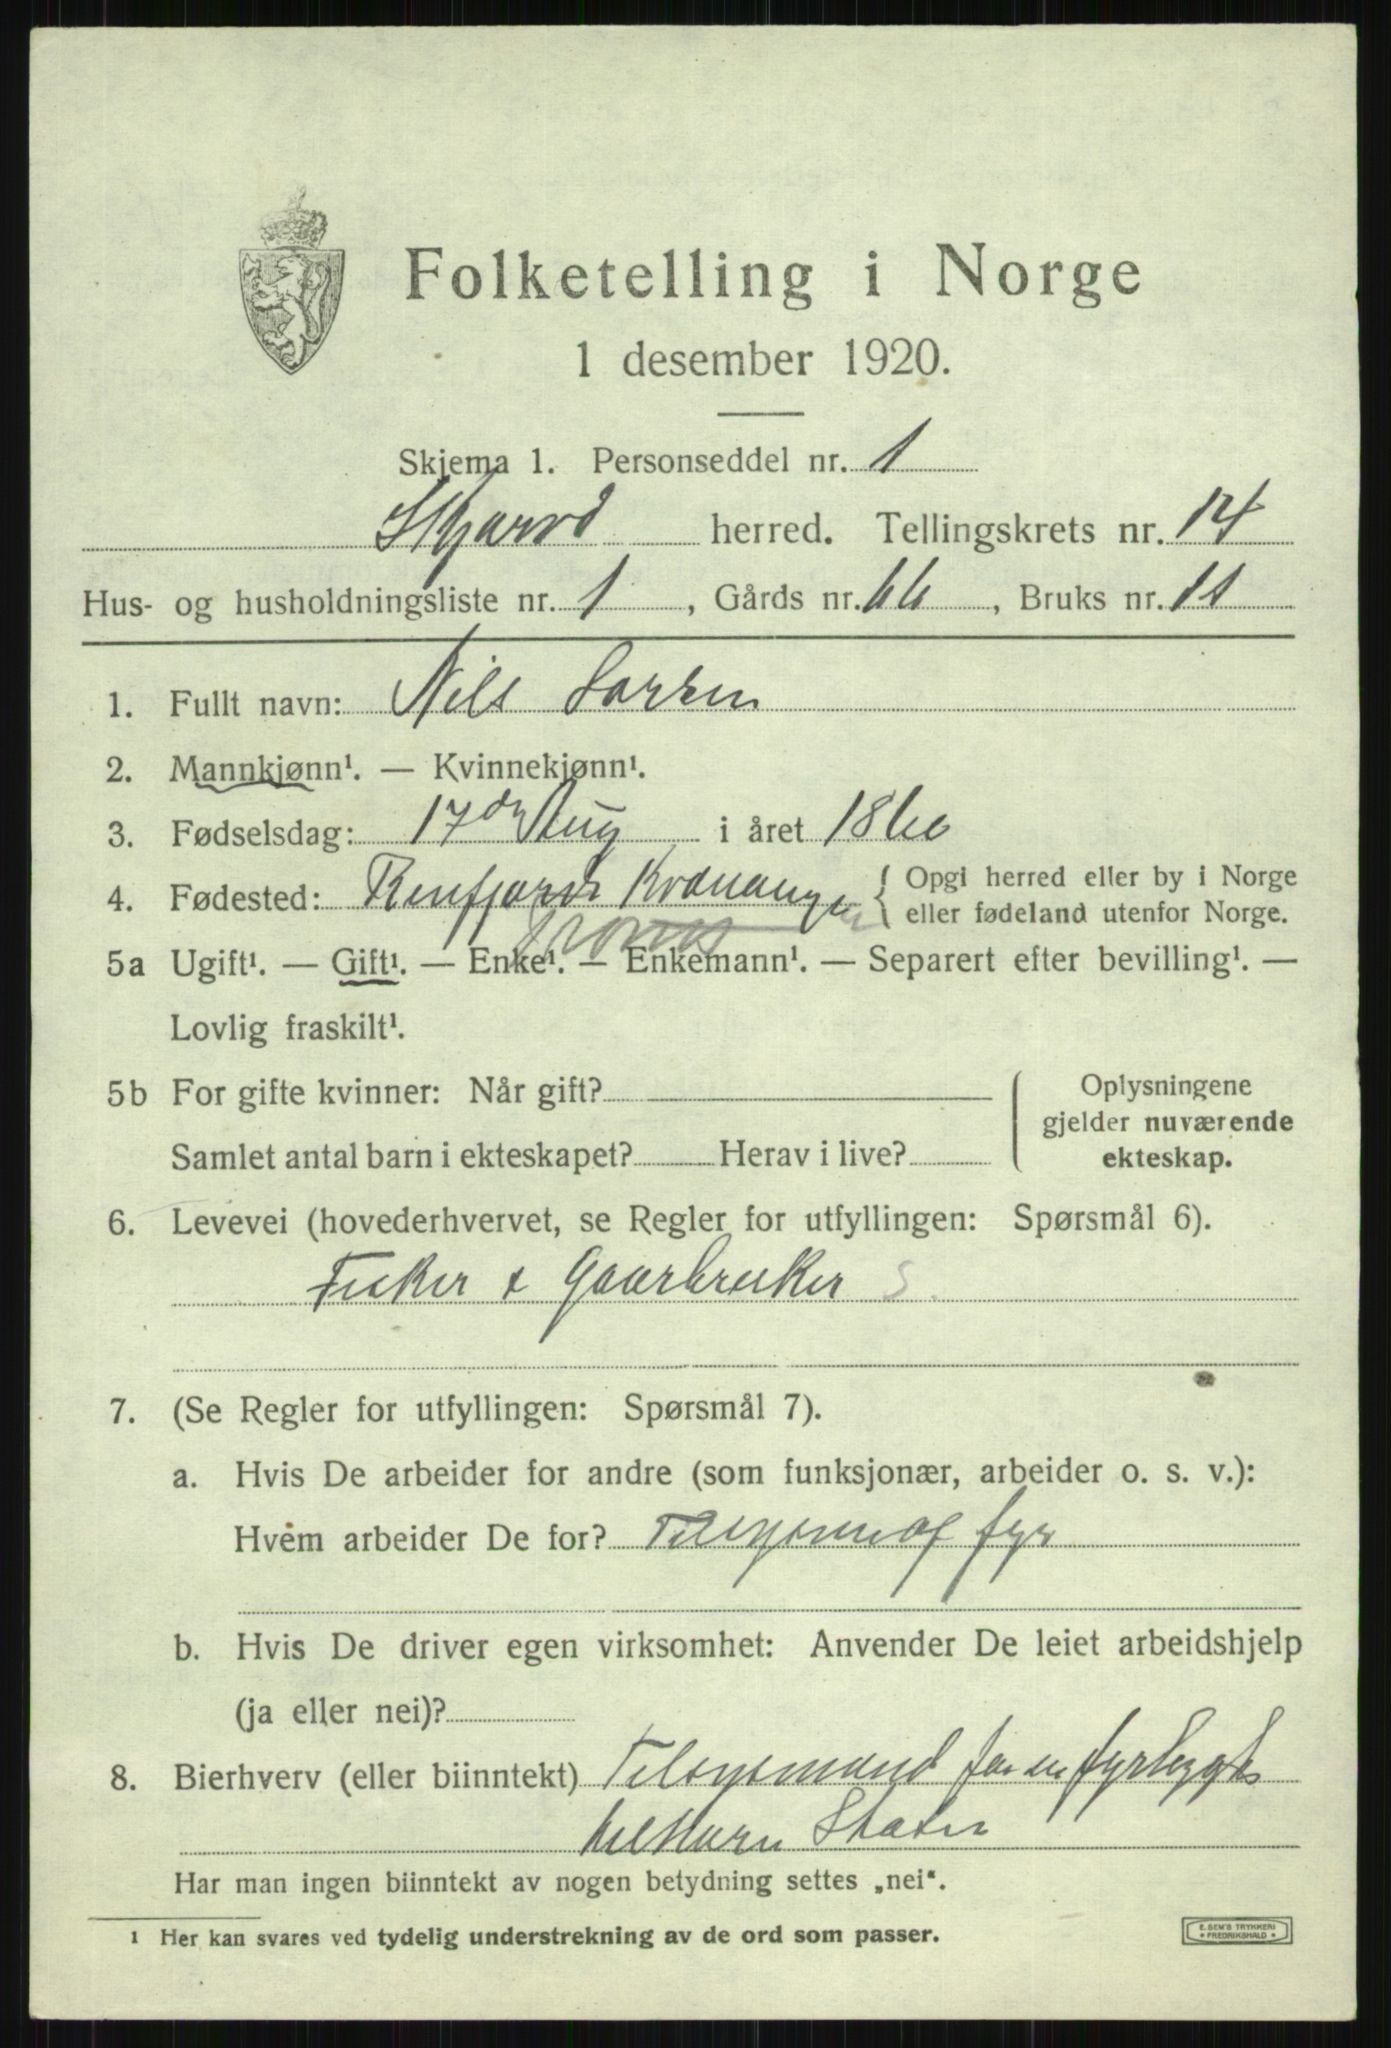 Folketelling i Norge
1 desember 1920.
Skjema 1. Personseddel nr. 1
Skjærvø herred. Tellingskrets nr. 14
Hus- og husholdningsliste nr. 1, Gårds nr. 66, Bruks nr. 11
1. Fullt navn: Nils Larsen
2. Mannkjønn¹. — Kvinnekjønn¹.
3. Fødselsdag: 17de Aug i året 1860
4. Fødested: Kvænangen { Opgi herred eller by i Norge
eller fødeland utenfor Norge.
Troms
5a Ugift¹. — Gift¹. — Enke¹. — Enkemann¹. — Separert efter bevilling¹. —
Lovlig fraskilt¹.
5b For gifte kvinner: Når gift?
Samlet antal barn i ekteskapet? Herav i live?
Oplysningene
gjelder nuværende
ekteskap.
6. Levevei (hovederhvervet, se Regler for utfyllingen: Spørsmål 6).
Fisker & Gaarbruker S.
7. (Se Regler for utfyllingen: Spørsmål 7).
a. Hvis De arbeider for andre (som funksjonær, arbeider o. s. v.):
Hvem arbeider De for? Tilsyn af fyr
b. Hvis De driver egen virksomhet: Anvender De leiet arbeidshjelp
(ja eller nei)?
8. Bierhverv (eller biinntekt) Tilsynsmand for en fyrlygt
Staten
Har man ingen biinntekt av nogen betydning settes „nei“.
¹ Her kan svares ved tydelig understrekning av de ord som passer.
E. SEM'S TRYKKERI
FREDRIKSHALD